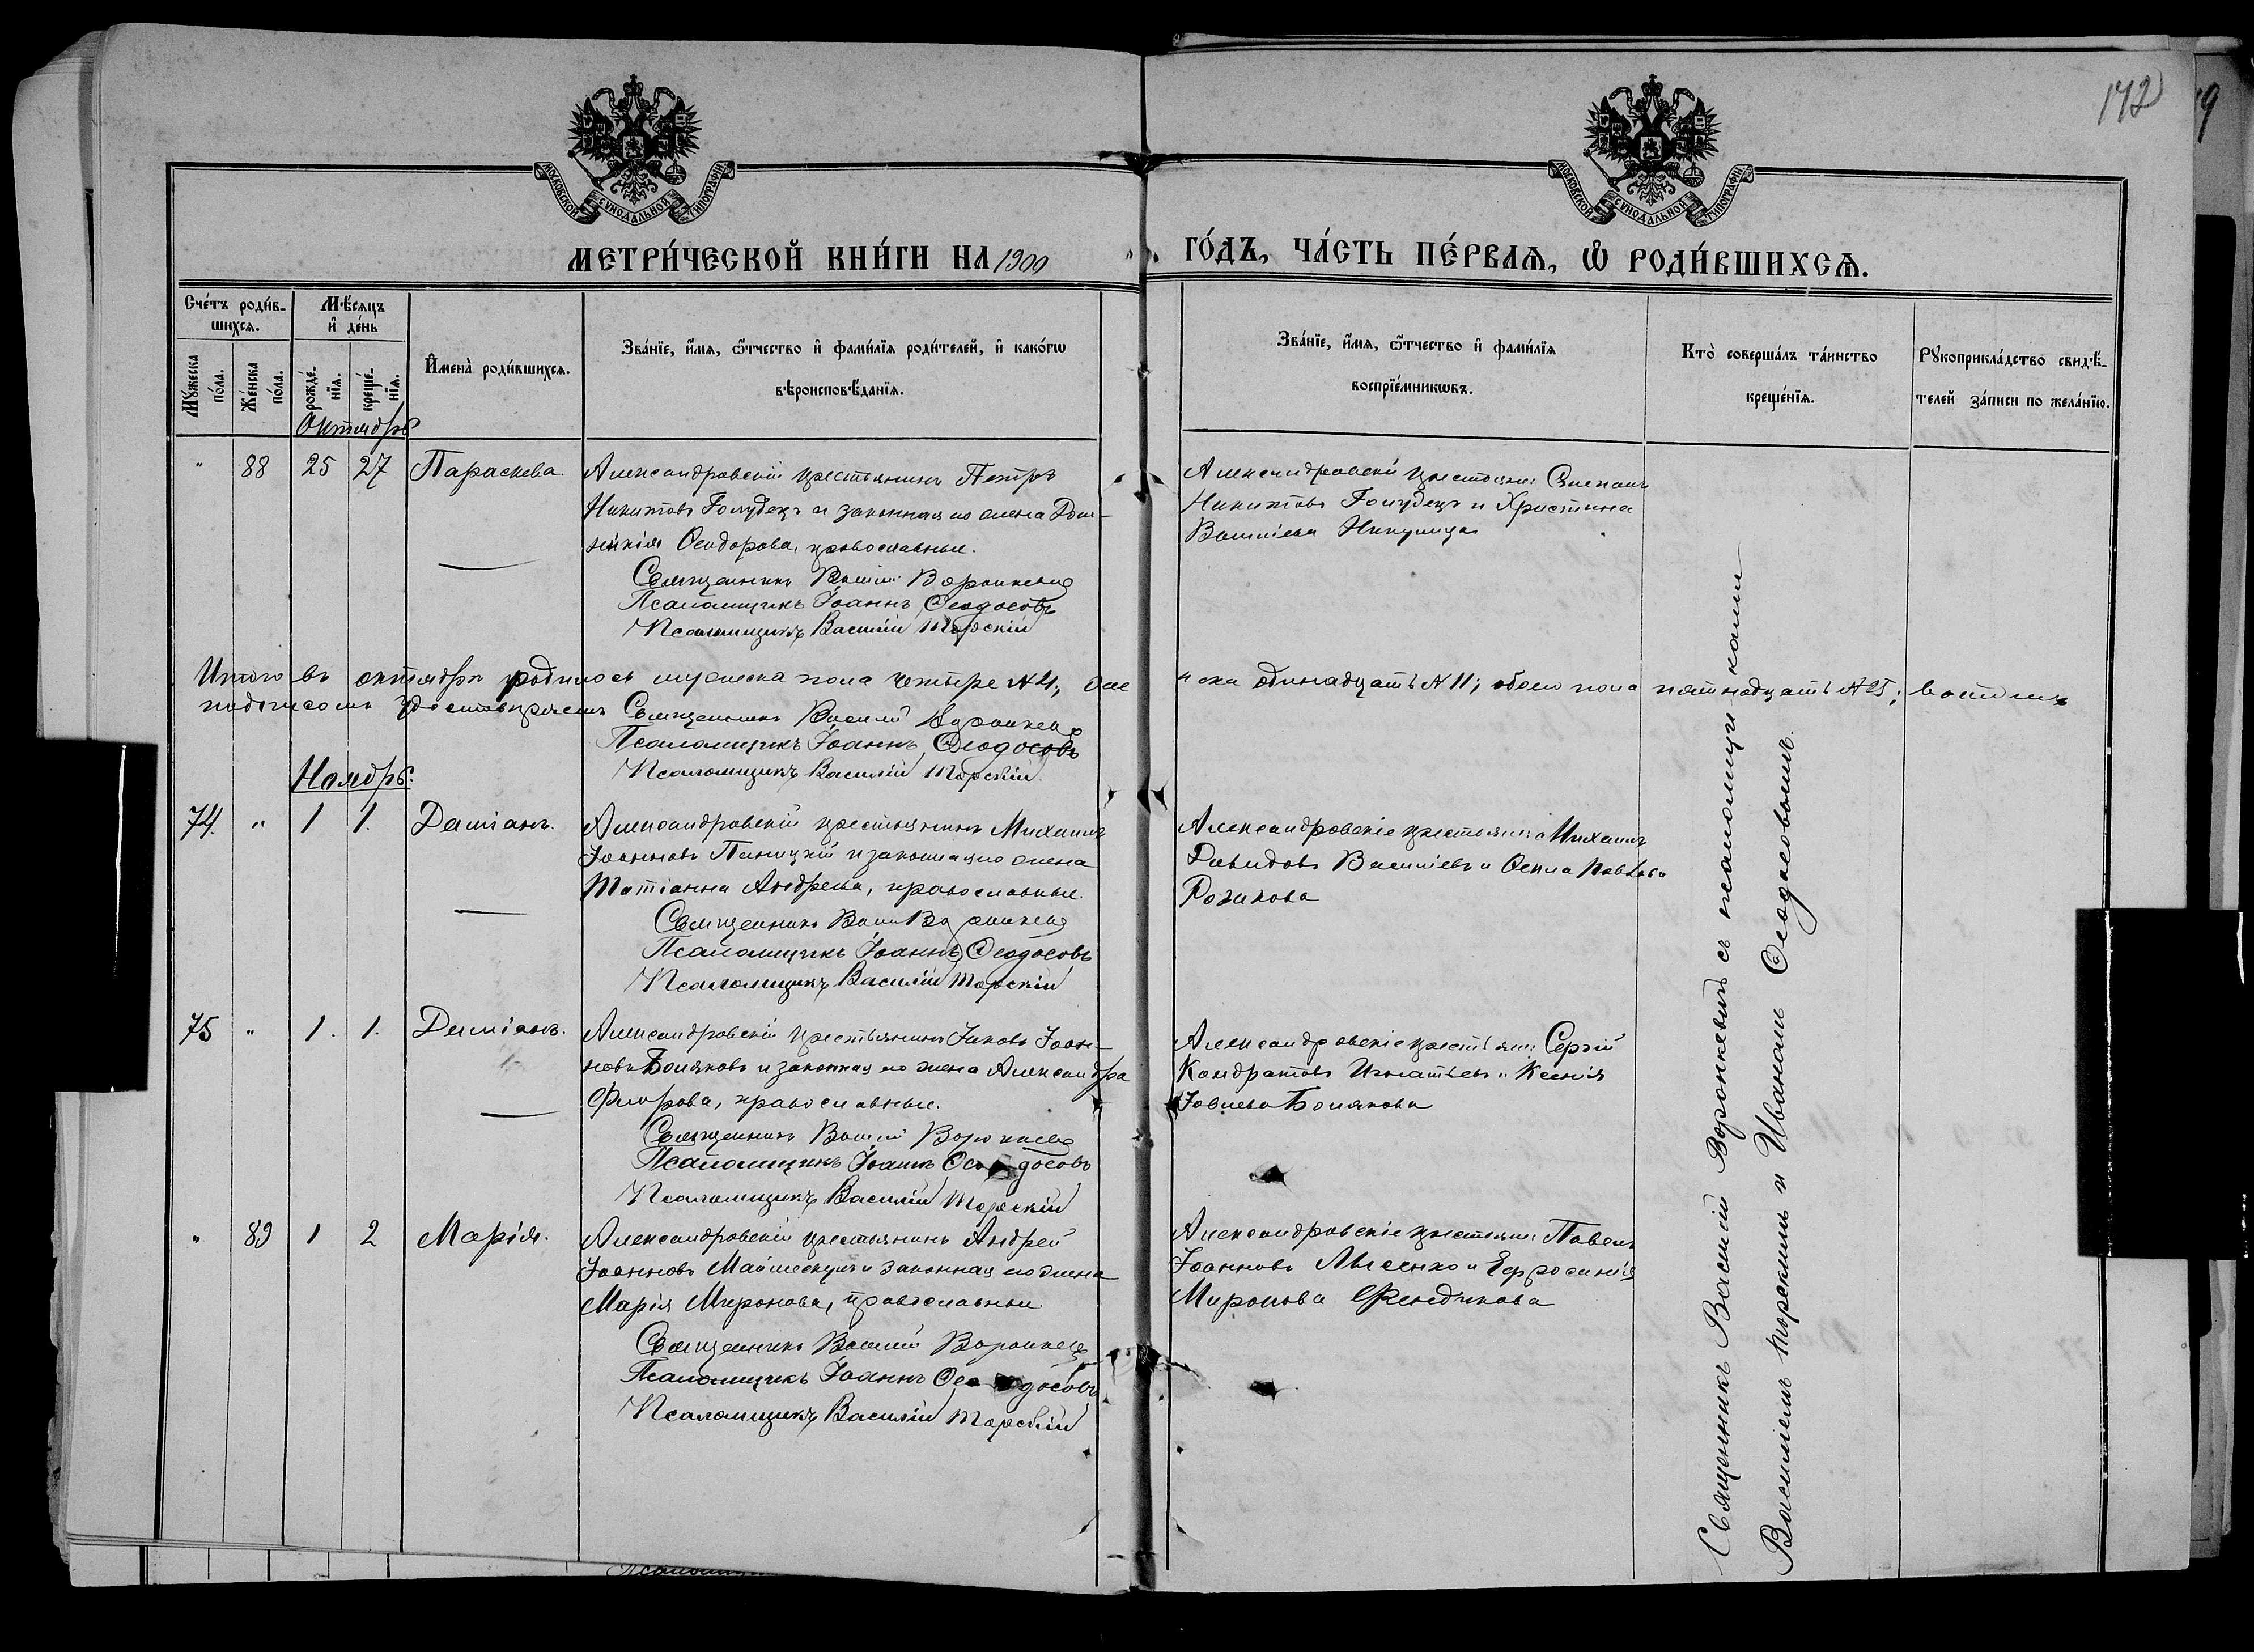 172
МОСКОВСКОЙ СУНОДАЛЬНОЙ ТИПОГРАФІИ
МОСКОВСКОЙ СУНОДАЛЬНОЙ ТИПОГРАФІИ
МЕТРИ́ЧЕСКОЙ КНИ́ГИ НА 1900 ГО́ДЪ, ЧА́СТЬ ПЕ́РВАѦ, Ѡ РОДИ́ВШИХСѦ.
Сче́тъ роди́в-
шихсѧ.
Мꙋ́жеска по́ла.
Же́нска по́ла.
Мѣ́сѧцъ
и҆ де́нь
рожде́-нїѧ.
креще́-нїѧ.
И҆мена̀ роди́вшихсѧ.
Зва́нїе, и҆́мѧ, ѻ҆́тчество и҆ фами́лїѧ роди́телей, и҆ како́гѡ
вѣроисповѣ́данїѧ.
Зва́нїе, и҆́мѧ, ѻ҆́тчество и҆ фами́лїѧ
воспрїе́мникѡвъ.
Кто̀ соверша́лъ та́инство
креще́нїѧ.
Рꙋкоприкла́дство свидѣ́-
телей за́писи по жела́нїю.
Октябрь
" 88 25 27 Параскева.
Александровскій крестьянинъ Петръ
Никитовъ Голубецъ и законная его жена Дом-
никія Ѳеодорова, православные.
Священникъ Василій Воронкевич
Псаломщикъ Іоаннъ Ѳеодосовъ
Псаломщикъ Василій Торскій
Александровскіе крестьяне: Степанъ
Никитовъ Голубецъ и Христина
Васильева
Итого въ октябрѣ родилось мужеска пола четыре №4, жен
ска одинадцать №11; обоего пола пятнадцать №15;
подписомъ удостовѣряемъ Священникъ Василій Воронкевич
Псаломщикъ Іоаннъ Ѳеодосовъ
Псаломщикъ Василій Торскій
Ноябрь.
74. " 1 1. Даміанъ.
Александровскій крестьянинъ Михаилъ
Іоанновъ Паницкій и законная его жена
Татіанна Андреева, православные.
Священникъ Васил Воронкевич
Псаломщикъ Іоаннъ Ѳеодосовъ
Псаломщикъ Василій Торскій
Александровскіе крестьяне: Михаилъ
Давидовъ Васильевъ и Ѳекла Павлова
75 " 1. 1. Даміанъ.
Александровскій крестьянинъ Іаковъ Іоан-
новъ Боляковъ и законная его жена Александра
Флорова, православные.
Священникъ Василій Воронкевич
Псаломщикъ Іоаннъ Ѳеодосовъ
Псаломщикъ Василій Торскій
Александровскіе крестьяне: Сергій
Кондратовъ Игнатьевъ и Ксенія
Іовлева Болякова
" 89 1 2 Марія.
Александровскій крестьянинъ Андрей
Іоанновъ и законная его жена
Марія Миронова, православные.
Священникъ Василій Воронкевич
Псаломщикъ Іоаннъ Ѳеодосовъ
Псаломщикъ Василій Торскій
Александровскіе крестьяне: Павелъ
Іоанновъ Лысенко и Ефросинія
Миронова Фендикова
Священникъ Василій Воронкевичъ съ псаломщиками
Василіемъ Торскимъ и Иваномъ Ѳеодосовымъ.